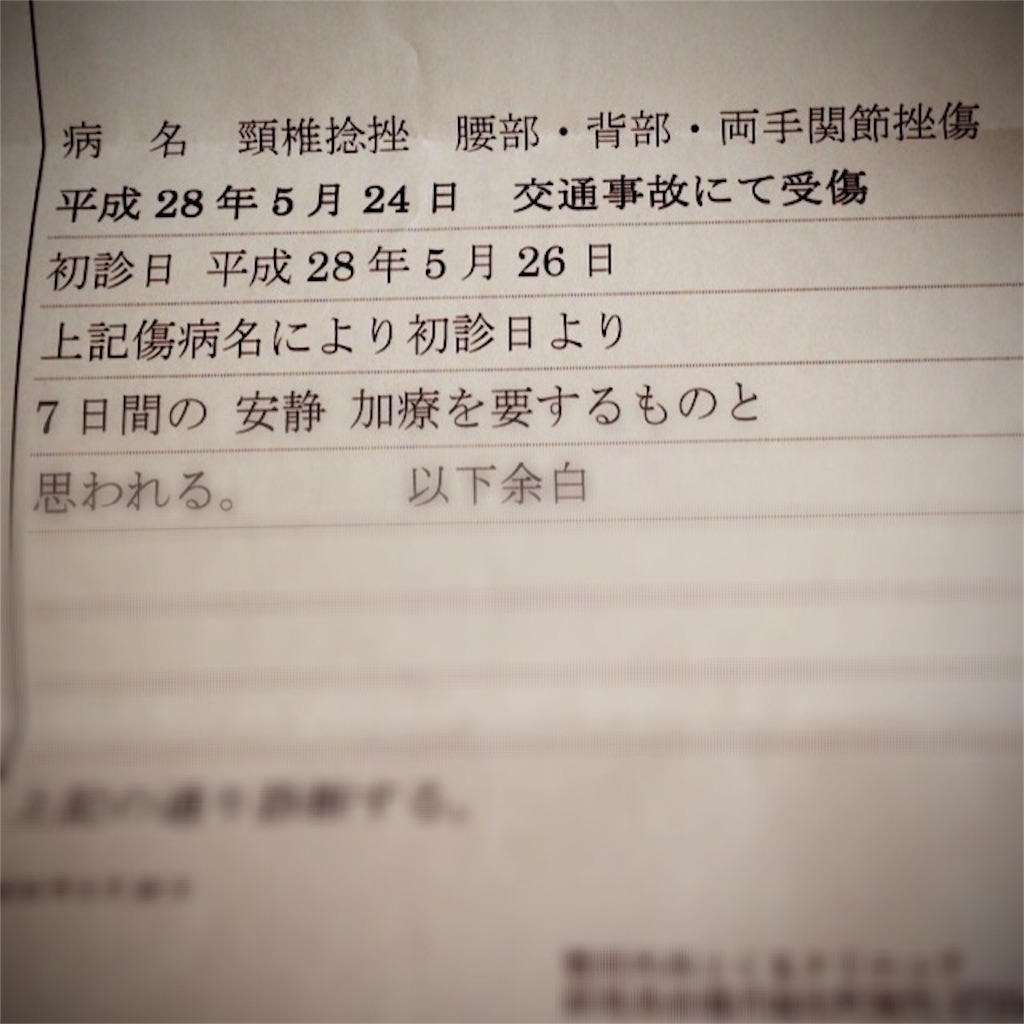 病　名　頸椎捻挫　腰部・背部・両手関節挫傷
平成 28 年 5 月 24 日　交通事故にて受傷
初診日　平成 28 年 5 月 26 日
上記傷病名により初診日より
7 日間の 安静 加療を要するものと
思われる。　　　　以下余白
上記の通り診断する。